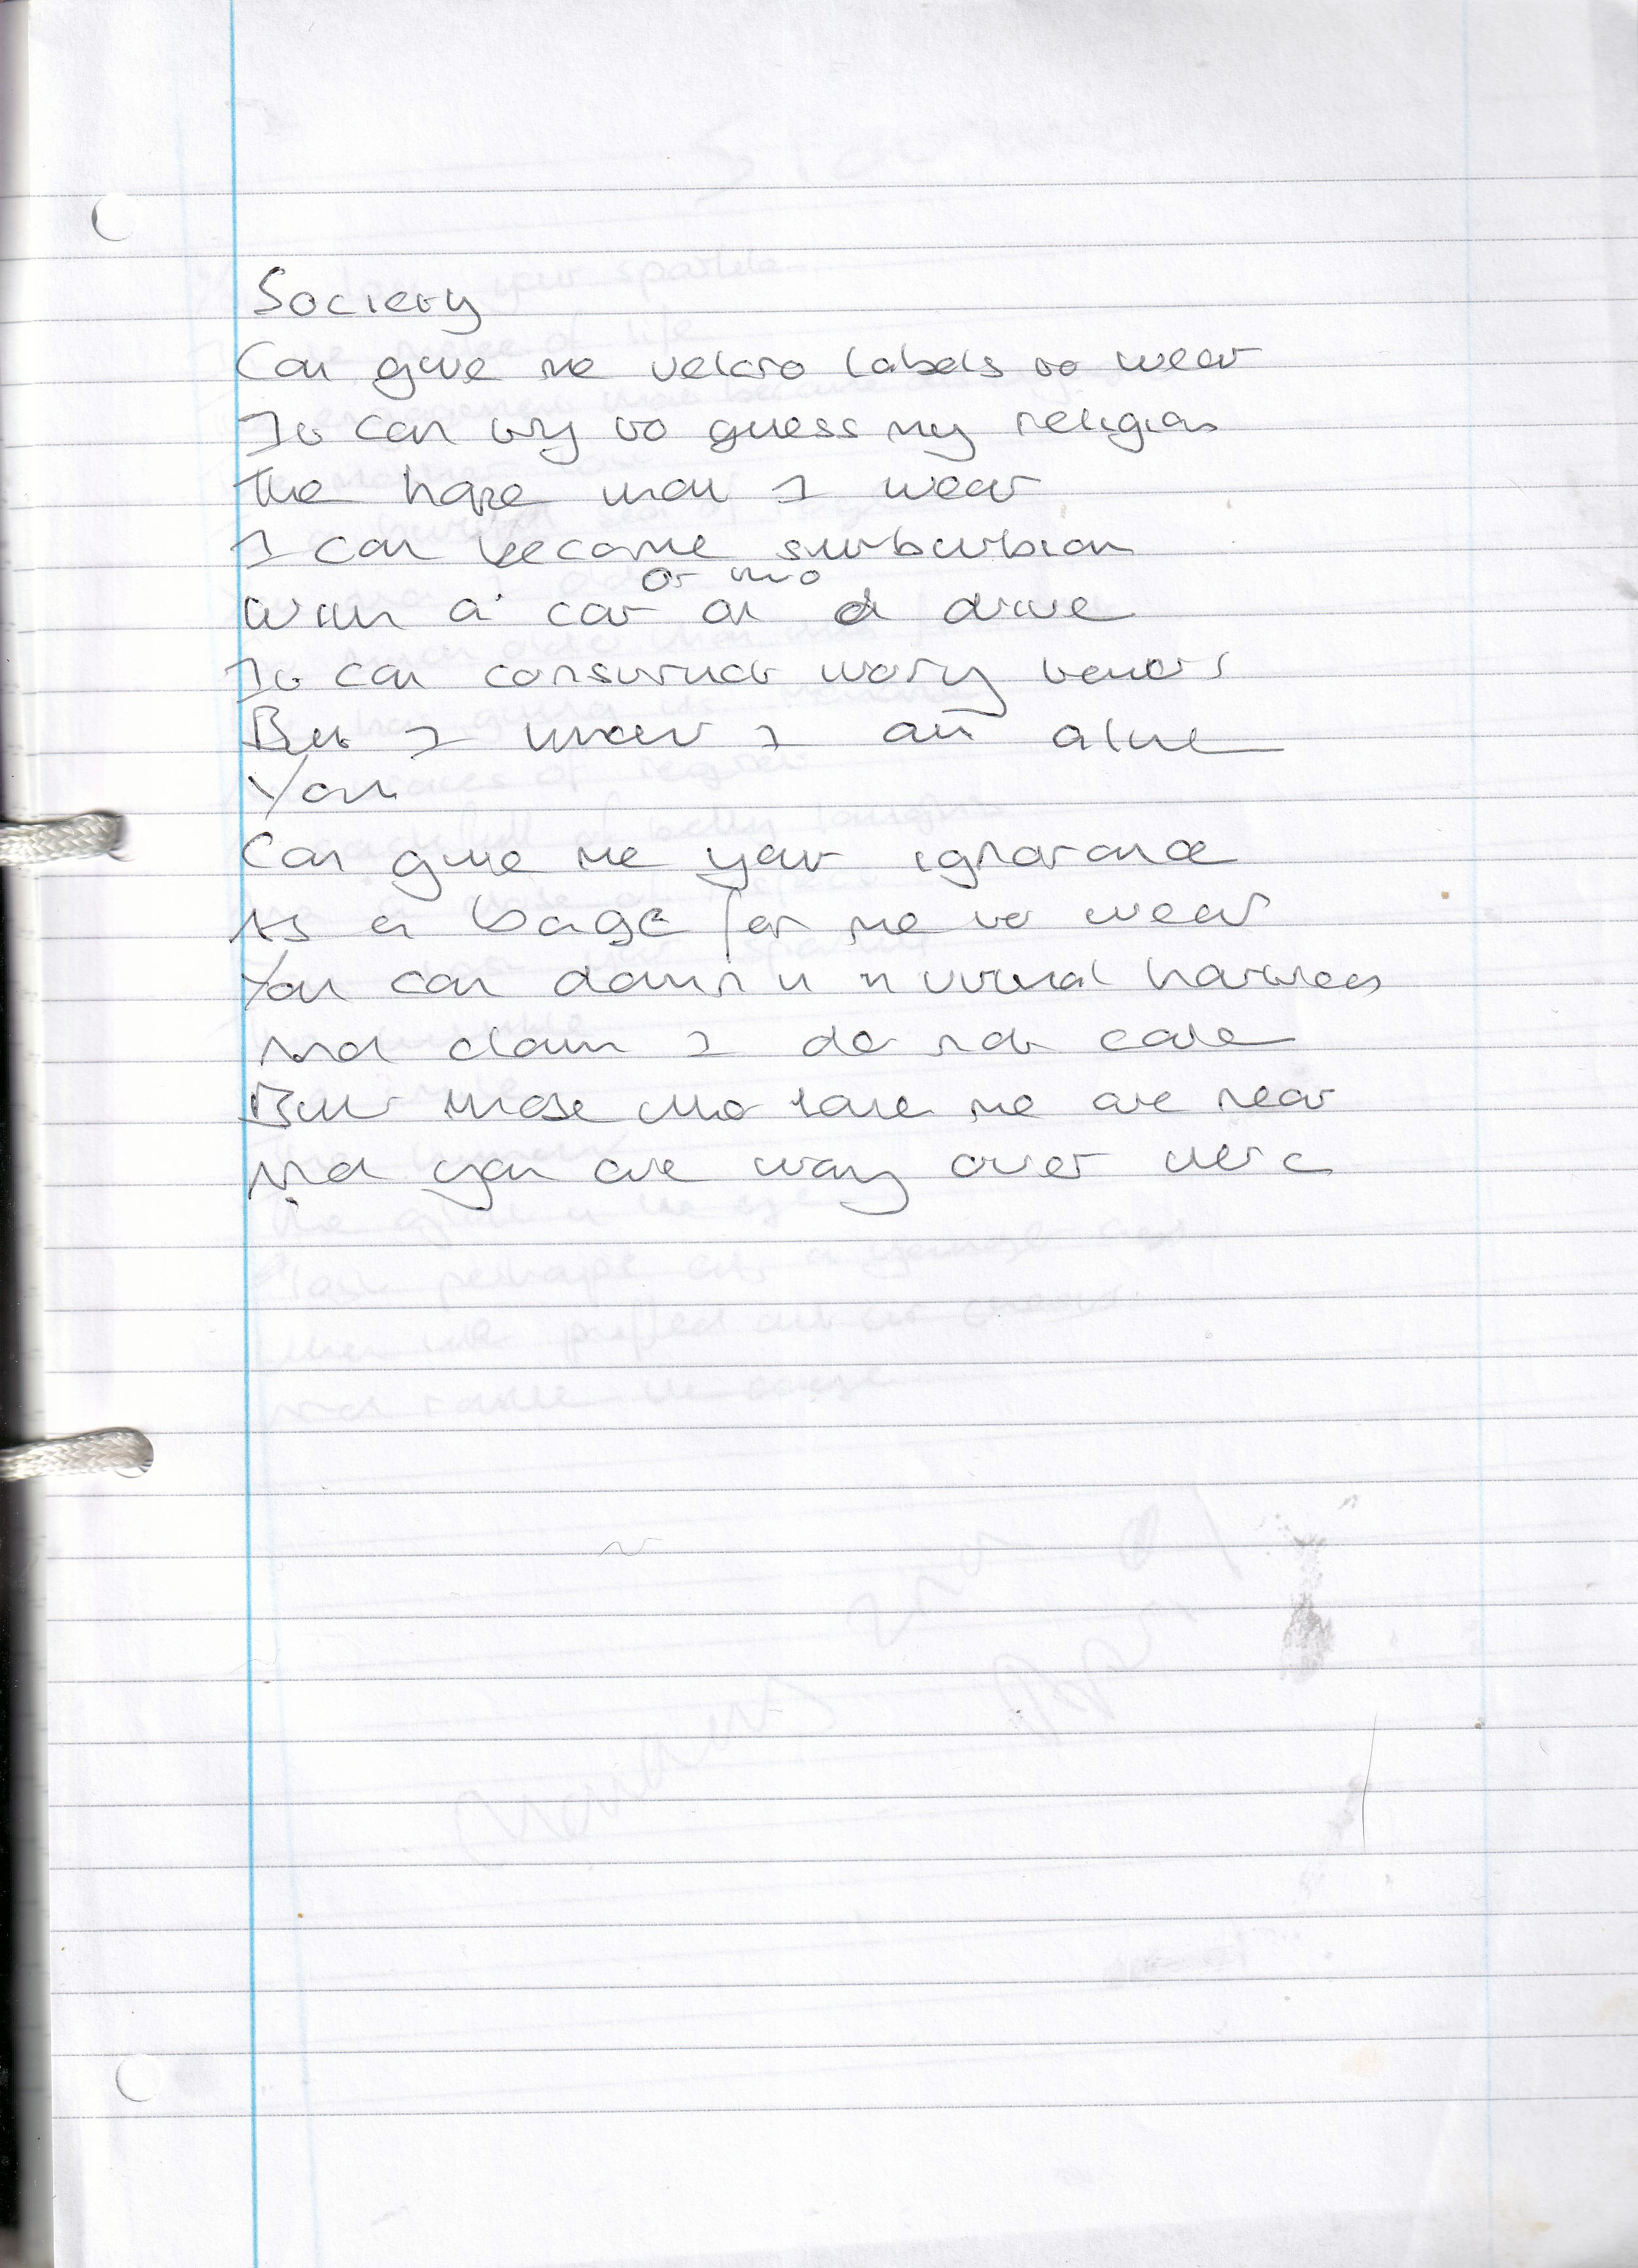 Society
Can give me velcro labels to wear
It can try to guess my religion
The hope that I wear
I can become surburbian
or two
With a car on a drive
It can construct
But I know I am alive
You
Can give me your ignorance
As a bage for me to wear
You can damn
And claim I do not care
But those who love me are near
And you are way over there